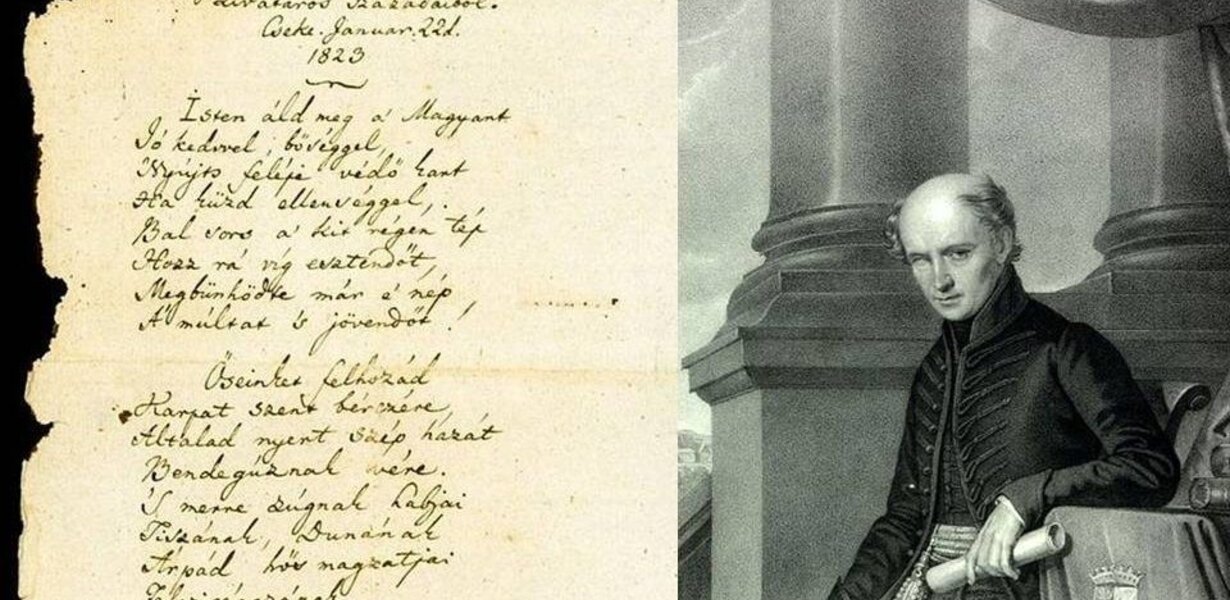 zivataros századaiból.
Cseke. Januar. 22d.
1823
Isten áld meg a' Magyart
Jó kedvvel, bőséggel,
Nyújts feléje védő kart
Ha küzd ellenséggel,
Bal sors a' kit régen tép
Hozz rá víg esztendőt,
Megbűnhödte már e' nép
A' múltat 's jövendőt!
Őseinket felhozád
Kárpát szent bérczére,
Általad nyert szép hazát
Bendegúznak vére.
'S merre zúgnak habjai
Tiszának, Dunának
Árpád hős magzatjai